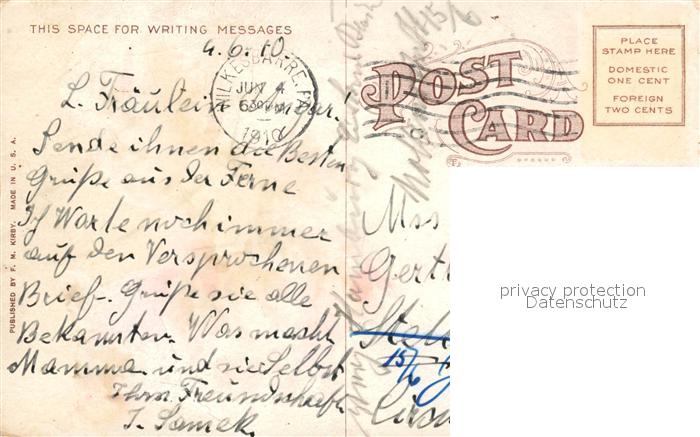 THIS SPACE FOR WRITING MESSAGES
4.6.10
WILKESBARRE, PA.
JUN 4
6 30 PM
1910
L. Fräulein
Sende ihnen die Besten
Grüße aus der Ferne
Ich Warte noch immer
auf den Versprochenen
Brief. Grüße sie alle
Bekannten. Was macht
Mamma und sie Selbst
Freundschaft
J. Samek
PUBLISHED BY F. M. KIRBY. MADE IN U. S. A.
POST CARD
PLACE
STAMP HERE
DOMESTIC
ONE CENT
FOREIGN
TWO CENTS
15/6
Mss
Gert
15/6
privacy protection
Datenschutz